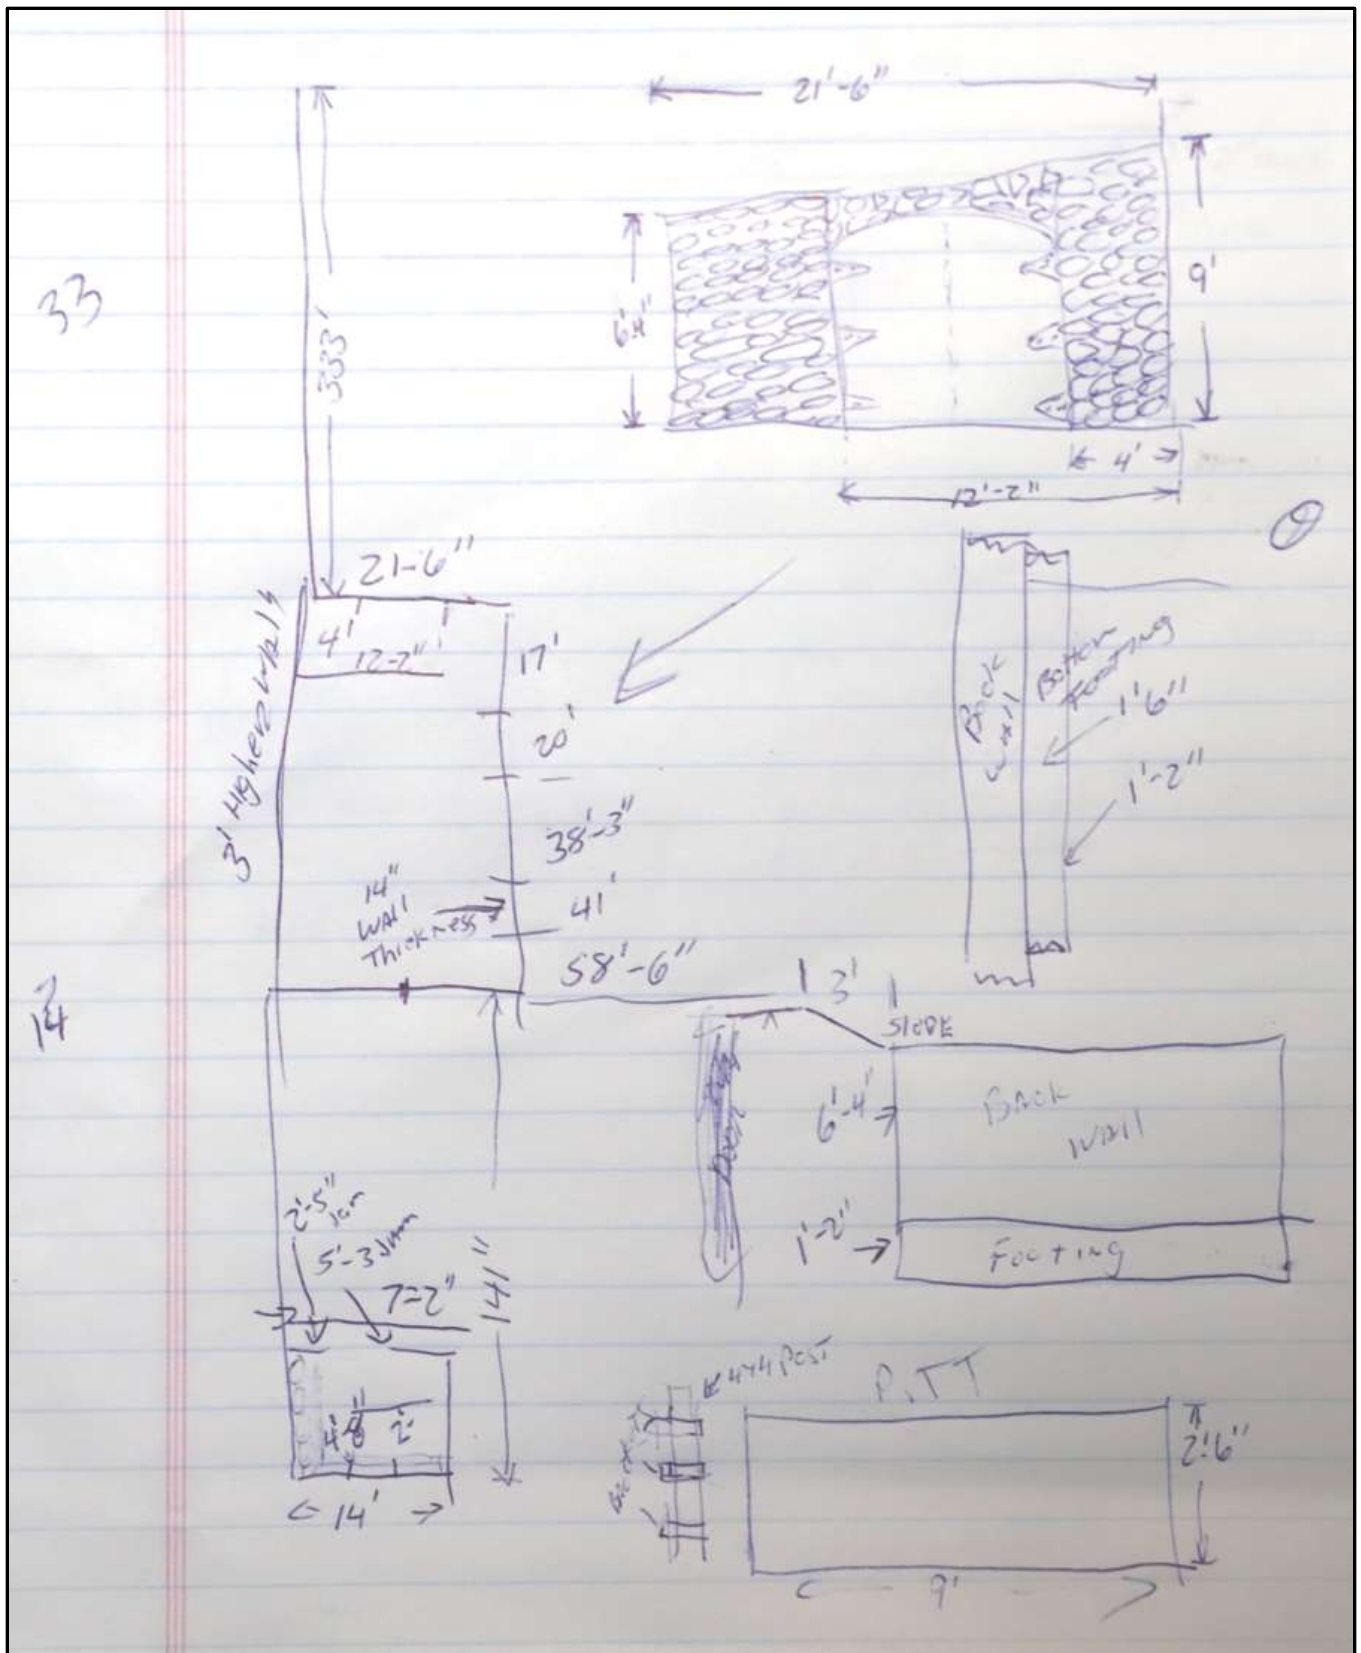 21'-6"
33
333'
6'-4"
9'
4'
12'-2"
21-6"
3' Higher walls
4'
12-2"
17'
20'
38'-3"
14"
WAll
Thickness
41'
58'-6"
Back
wall
Bottom
Footing
1'6"
1'-2"
14
3'
Slope
6'-4"
Back
WAll
1'-2"
Footing
2'-5"
Jam
5'-3 Jam
7-2"
141"
4'-8"
2'-
14'
4x4 Post
PiTT
2'-6"
9'